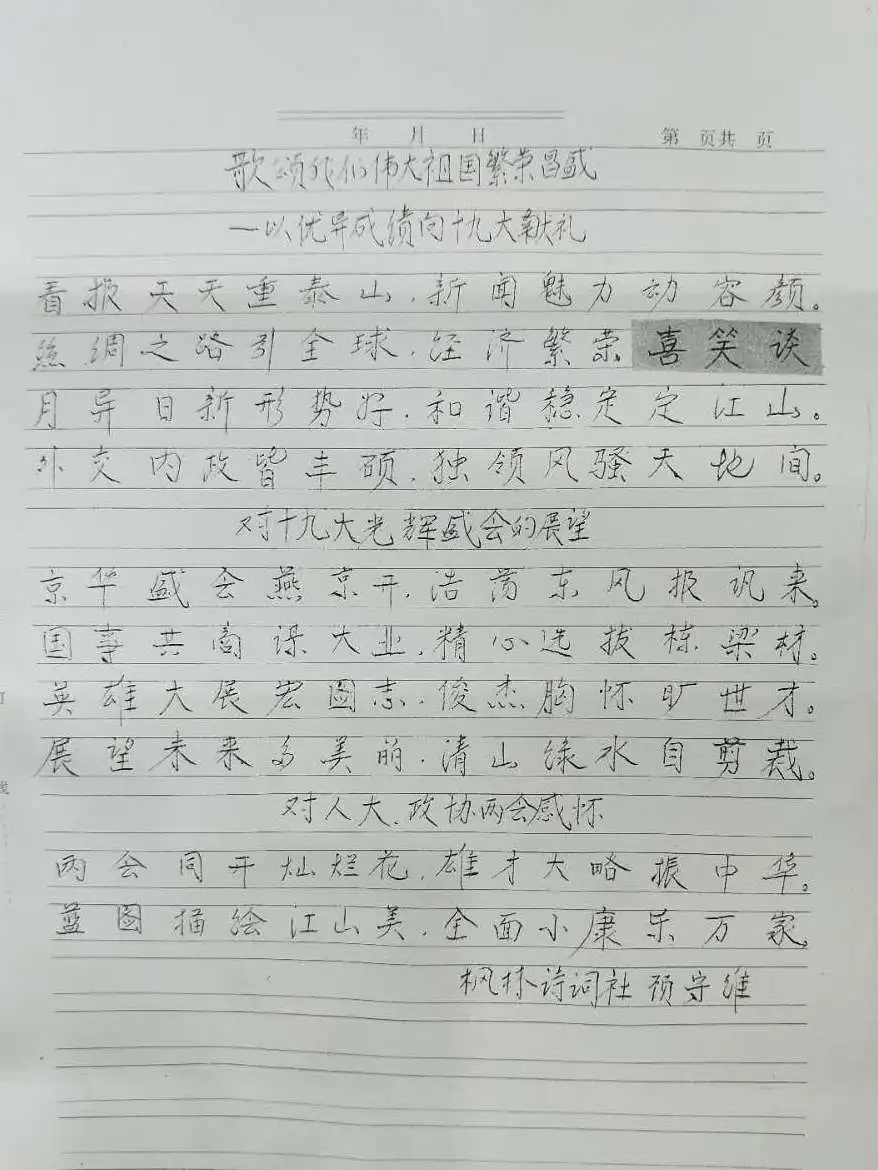 年 月 日 第 页共 页
歌颂我们伟大祖国繁荣昌盛
—以优异成绩向十九大献礼
看报天天重泰山，新闻魅力动容颜。
丝绸之路引全球，经济繁荣喜笑谈
月异日新形势好，和谐稳定定江山。
外交内政皆丰硕，独领风骚天地间。
对十九大光辉盛会的展望
京华盛会燕京开，浩荡东风报讯来。
国事共商谋大业，精心选拔栋梁材。
英雄大展宏图志，俊杰胸怀旷世才。
展望未来多美丽，清山绿水自剪裁。
对人大、政协两会感怀
两会同开灿烂花，雄才大略振中华。
蓝图描绘江山美，全面小康乐万家。
枫林诗词社 顾守维